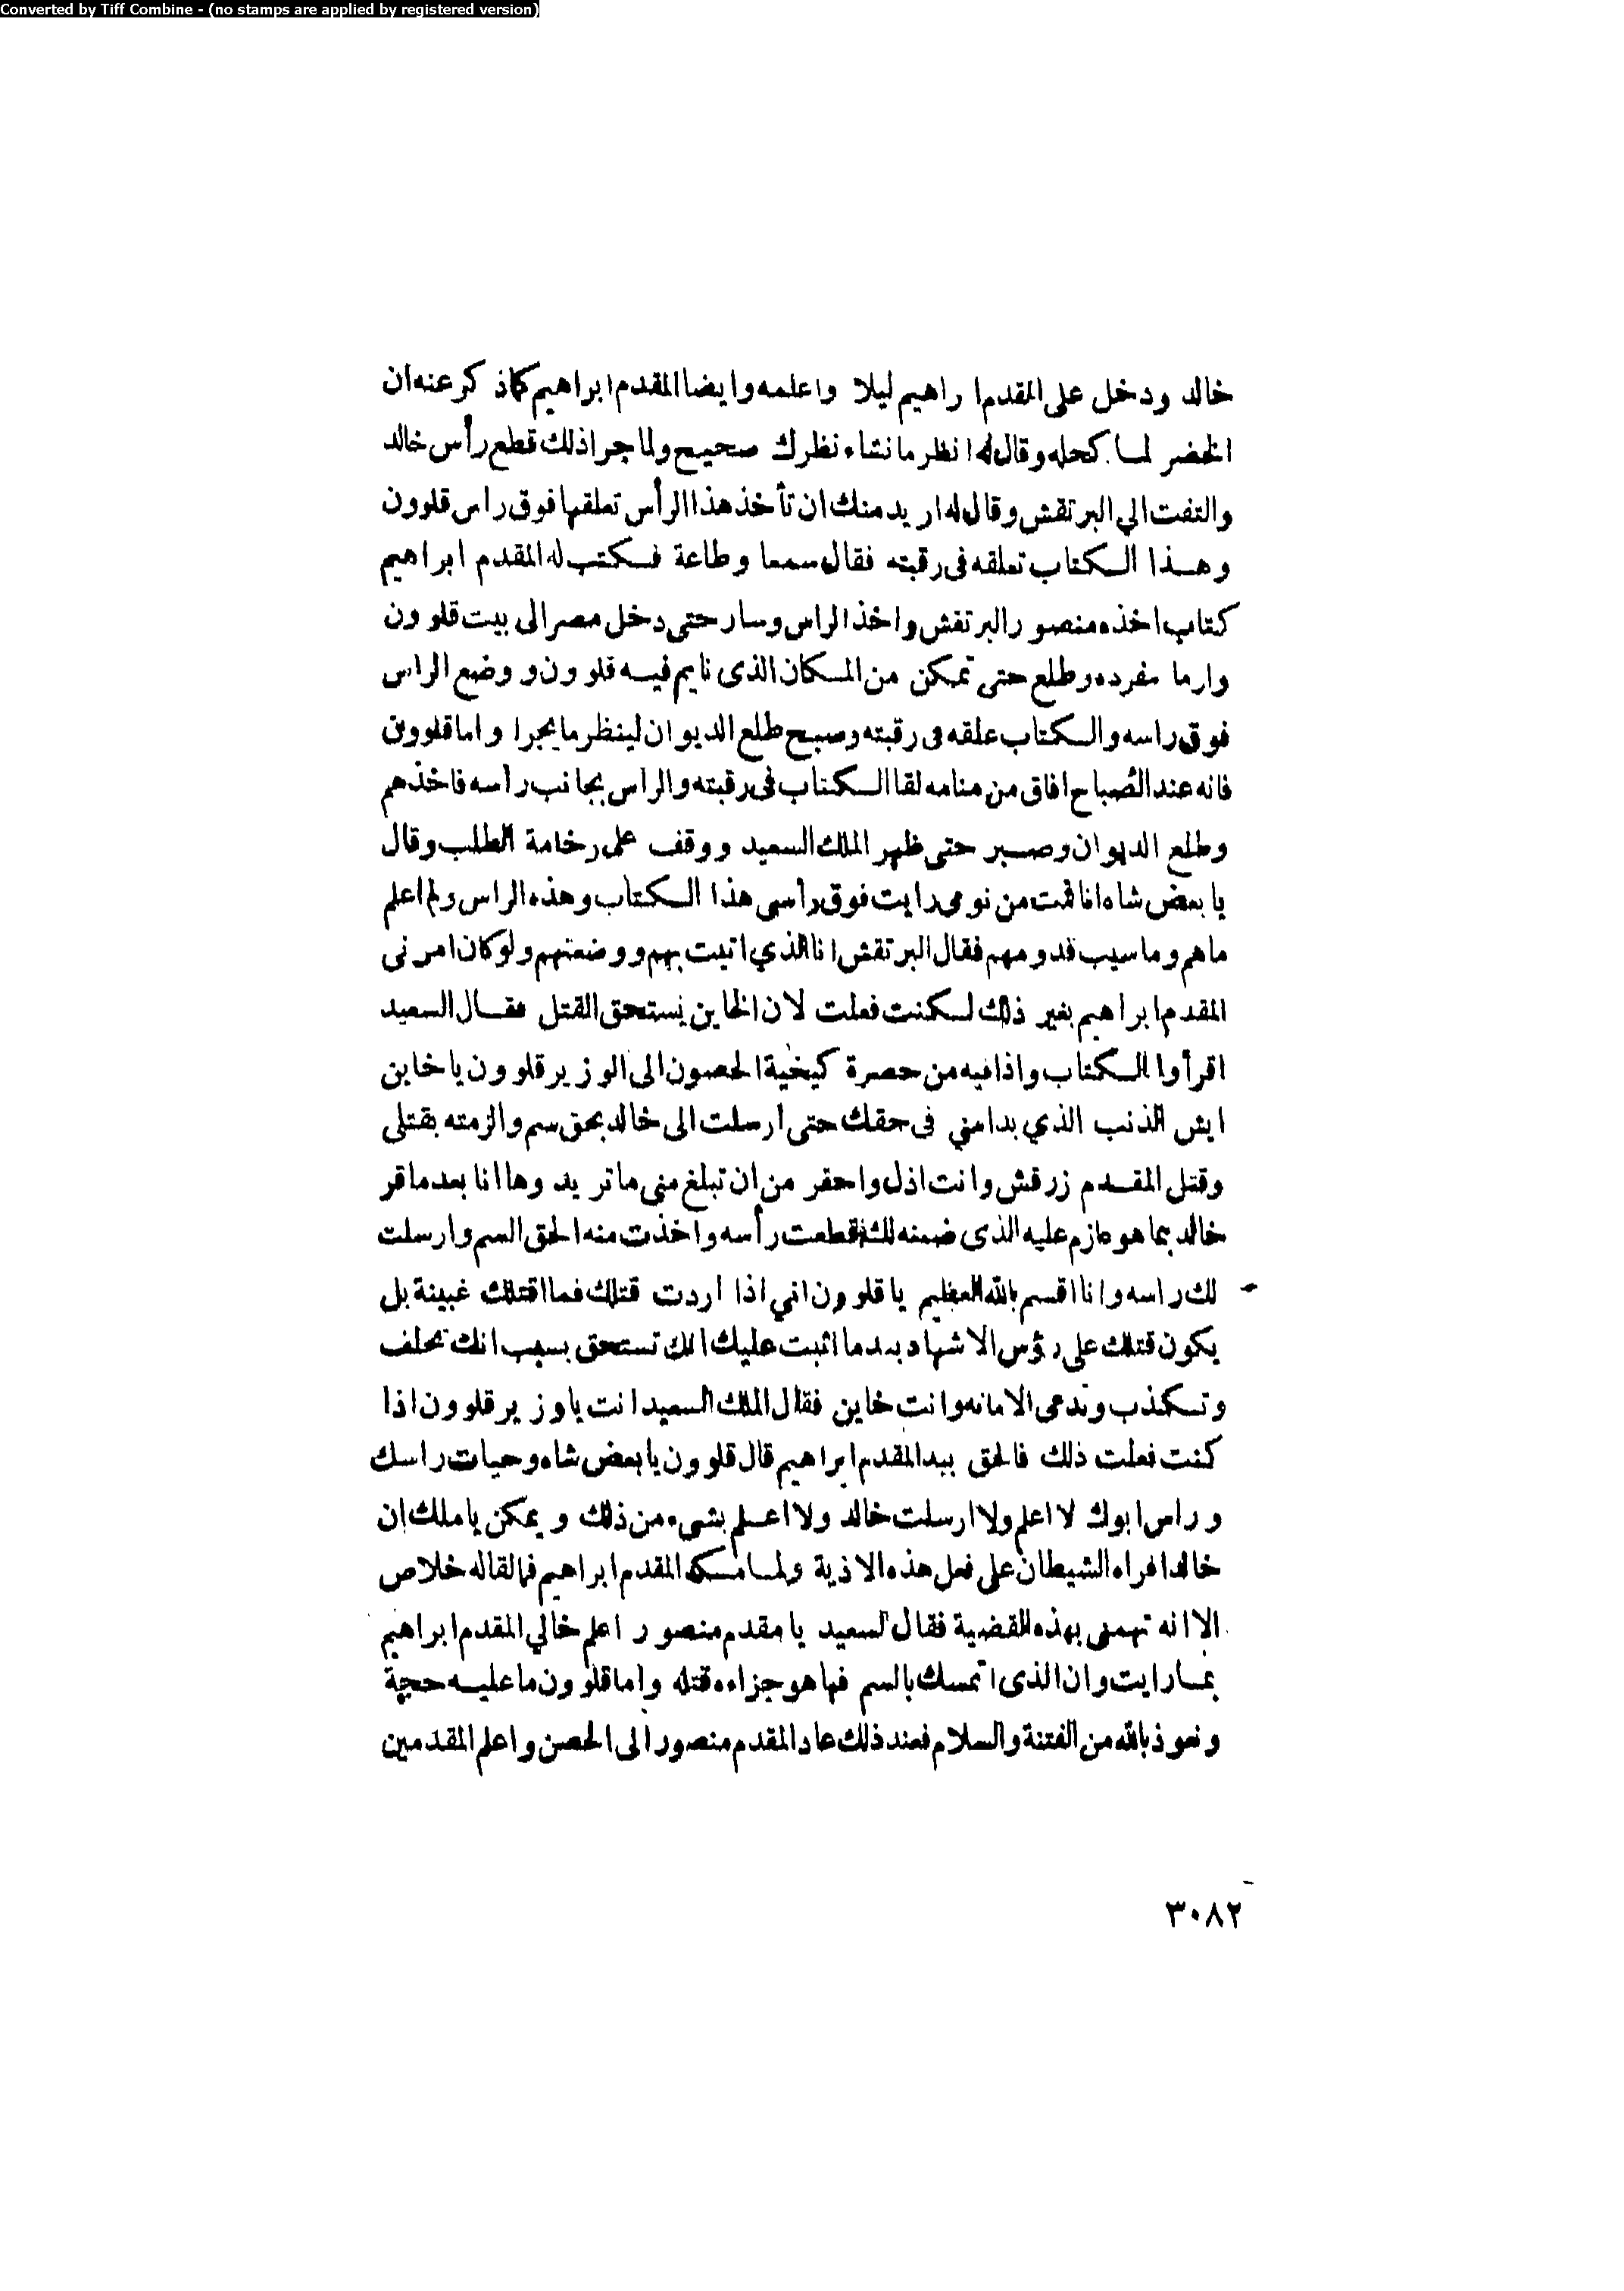 Converted by Tiff Combine - (no stamps are applied by registered version)
خالد ودخل على المقدم ا راهيم ليلا واعلمه وايضا المقدم ابراهيم كماذ كر عنه ان
الخضر لما كحله وقال له انظر ما نشاء نظرك صحيح ولما جرا ذلك قطع رأس خالد
والتفت الي البرتقش وقال له اريد منك ان تأخذ هذا الرأس تعلقها فوق راس قلوون
وهذا الكتاب تعلقه فى رقبته فقال سمعا وطاعة فكتب له المقدم ابراهيم
كتاب اخذه منصور البرتقش واخذ الراس وسار حتى دخل مصر الى بيت قلوون
وارما مفرده وطلع حتى تمكن من المكان الذى نايم فيه قلوون و وضع الراس
فوق راسه والكتاب علقه فى رقبته وصبح طلع الديوان لينظر ما يجرا واما قلوون
فانه عند الصباح افاق من منامه لقا الكتاب فى رقبته والراس بجانب رأسه فاخذهم
وطلع الديوان وصبر حتى ظهر الملك السعيد ووقف على رخامة الطلب وقال
يا بعض شاه انا قمت من نومى رايت فوق رأسى هذا الكتاب وهذه الراس ولم اعلم
ماهم وما سبب قدومهم فقال البرتقش انا الذي اتيت بهم ووضعتهم ولو كان امرنى
المقدم ابراهيم بغير ذلك لكنت فعلت لان الخاين يستحق القتل فقال السعيد
اقرأوا الكتاب واذا فيه من حصرة كيخية الحصون الى الوزير قلوون يا خاين
ايش الذنب الذي بدا مني فى حقك حتى ارسلت الى خالد بحق سم والزمته بقتلى
وقتل المقدم زرقش وانت اذل واحقر من ان تبلغ منى ما تريد وها انا بعد ما قر
خالد بما هو عازم عليه الذى ضمنه لك قطعت رأسه واخذت منه الحق السم وارسلت
لك راسه وانا اقسم بالله العظيم يا قلوون اني اذا اردت قتلك فما اقتلك غبينة بل
يكون قتلك على رؤس الاشهاد بعدما اثبت عليك انك تستحق بسبب انك تحلف
وتكذب وتدعى الامانه وانت خاين فقال الملك السعيد انت يا وزير قلوون اذا
كنت فعلت ذلك فالحق بيد المقدم ابراهيم قال قلوون يا بعض شاه وحيات راسك
وراس ابوك لا اعلم ولا ارسلت خالد ولا اعلم بشىء من ذلك ويمكن يا ملك ان
خالدا غراه الشيطان على فعل هذه الاذية ولما مسكه المقدم ابراهيم فما لقا له خلاص
الا انه تهمنى بهذه القضية فقال السعيد يا مقدم منصور اعلم خالي المقدم ابراهيم
بما رايت وان الذى اتمسك بالسم فها هو جزاءه قتله واما قلوون ما عليه حجة
ونعوذ بالله من الفتنة والسلام فعند ذلك عاد المقدم منصور الى الحصن واعلم المقدمين
٣٠٨٢